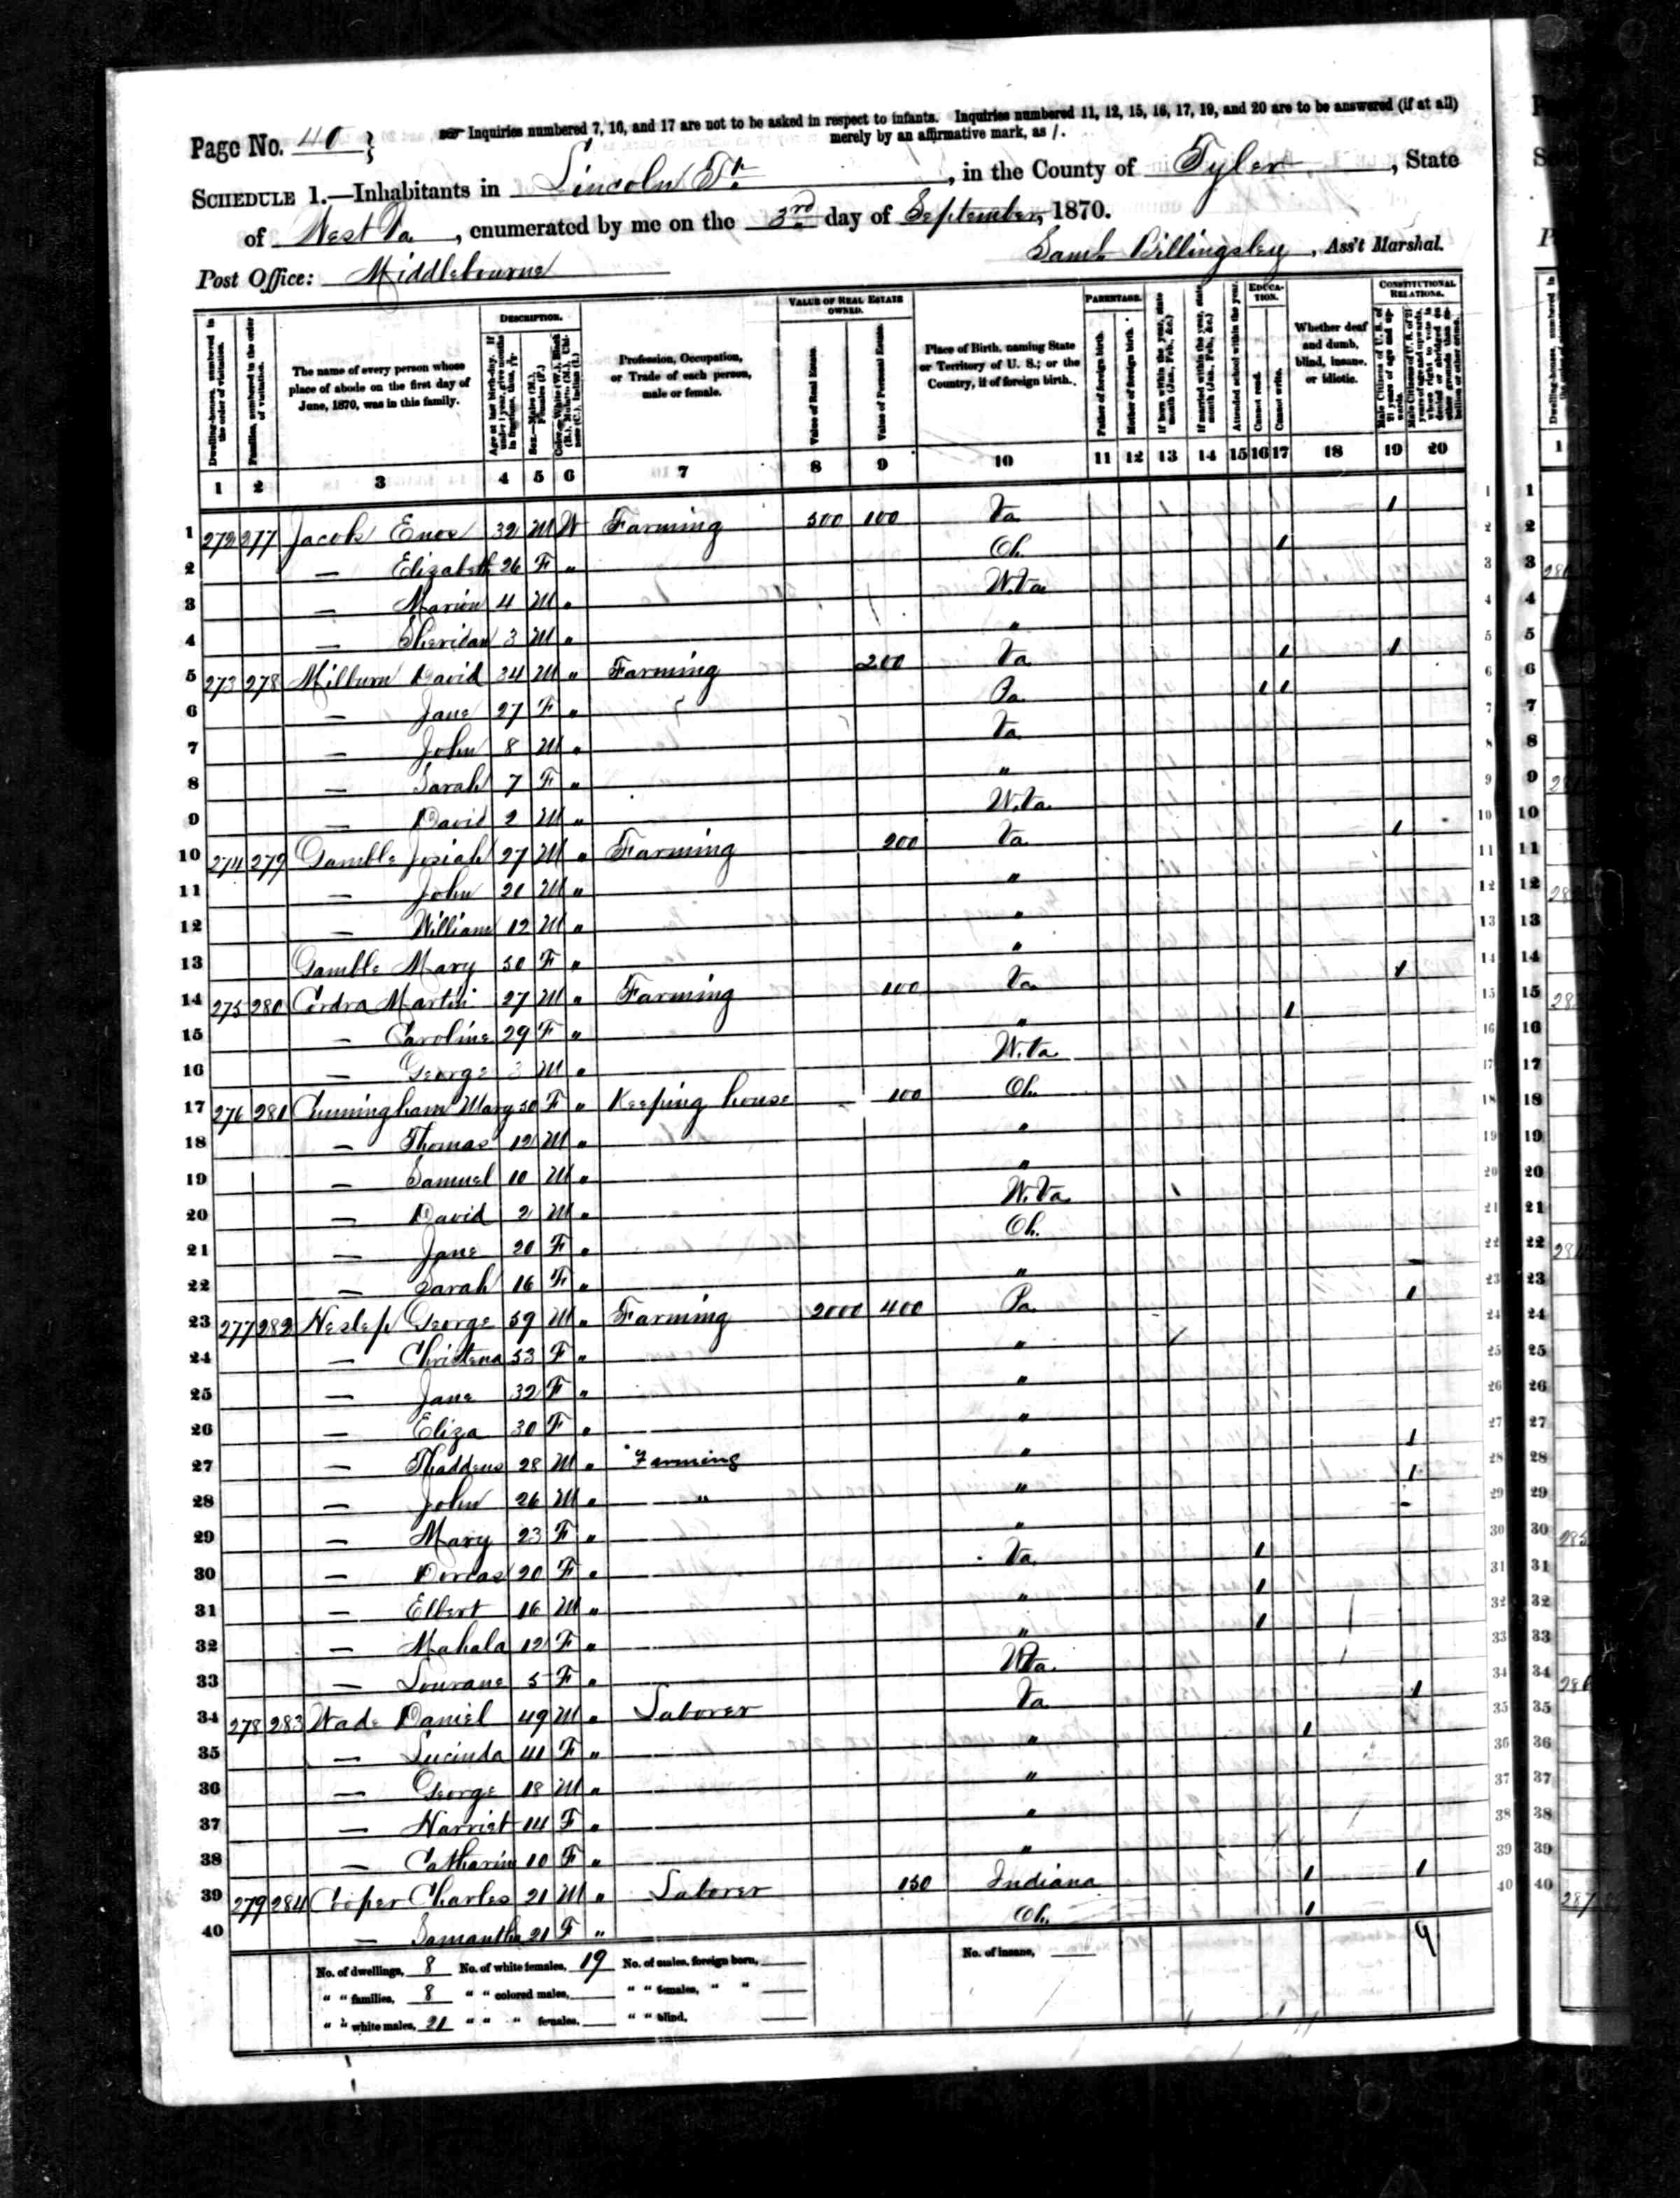 Page No. 40 } Inquiries numbered 7, 16, and 17 are not to be asked in respect to infants. Inquiries numbered 11, 12, 15, 16, 17, 19, and 20 are to be answered (if at all)
merely by an affirmative mark, as /.
SCHEDULE 1.—Inhabitants in Lincoln Tp., in the County of Tyler, State
of West Va, enumerated by me on the 3rd day of September, 1870.
Post Office: Middlebourne
Saml. Billingsley, Ass't Marshal.
DESCRIPTION. VALUE OF REAL ESTATE OWNED. PARENTAGE. EDUCATION. CONSTITUTIONAL RELATIONS.
Dwelling-houses, numbered in the order of visitation.
Families, numbered in the order of visitation.
The name of every person whose place of abode on the first day of June, 1870, was in this family.
Profession, Occupation, or Trade of each person, male or female.
Value of Real Estate.
Value of Personal Estate.
Place of Birth, naming State or Territory of U. S.; or the Country, if of foreign birth.
Father of foreign birth.
Mother of foreign birth.
If born within the year, state month (Jan., Feb., &c.)
If married within the year, state month (Jan., Feb., &c.)
Attended school within the year.
Cannot read.
Cannot write.
Whether deaf and dumb, blind, insane, or idiotic.
1 2 3 4 5 6 7 8 9 10 11 12 13 14 15 16 17 18 19 20
1 272 277 Jacobs Enos 32 M W Farming 500 100 Va 1
2 — Elizabeth 26 F " Oh. 1
3 — Marion 4 M " W.Va
4 — Sheridan 3 M " "
5 273 278 Milburn David 34 M " Farming 200 Va 1 1
6 — Jane 27 F " Pa 1 1
7 — John 8 M " Va
8 — Sarah 7 F " "
9 — David 2 M " W.Va
10 274 279 Gamble Josiah 27 M " Farming 200 Va 1
11 — John 20 M " "
12 — William 12 M " "
13 Gamble Mary 50 F " "
14 275 280 Cordra Martin 27 M " Farming 100 Va 1
15 — Caroline 29 F " " 1
16 — George 3 M " W.Va
17 276 281 Cunningham Mary 50 F " Keeping house — 100 Oh.
18 — Thomas 12 M " "
19 — Samuel 10 M " "
20 — David 2 M " W.Va
21 — Jane 20 F " Oh.
22 — Sarah 16 F " "
23 277 282 Heslep George 59 M " Farming 2000 400 Pa 1
24 — Christena 53 F " "
25 — Jane 32 F " "
26 — Eliza 30 F " "
27 — Thaddeus 28 M " Farming " 1
28 — John 26 M " " " 1
29 — Mary 23 F " "
30 — Dorcas 20 F " Va 1
31 — Elbert 16 M " " 1
32 — Mahala 12 F " " 1
33 — Lourane 5 F " WVa
34 278 283 Wade Daniel 49 M " Laborer Va 1
35 — Lucinda 41 F " " 1
36 — George 18 M " "
37 — Harriet 14 F " "
38 — Catharine 10 F " "
39 279 284 Cooper Charles 21 M " Laborer 150 Indiana 1 1
40 — Samantha 21 F " Oh. 1
No. of dwellings, 8 No. of white females, 19 No. of males, foreign born, No. of insane, 9
" " families, 8 " " colored males, " " females, " "
" " white males, 21 " " " females, " " blind,